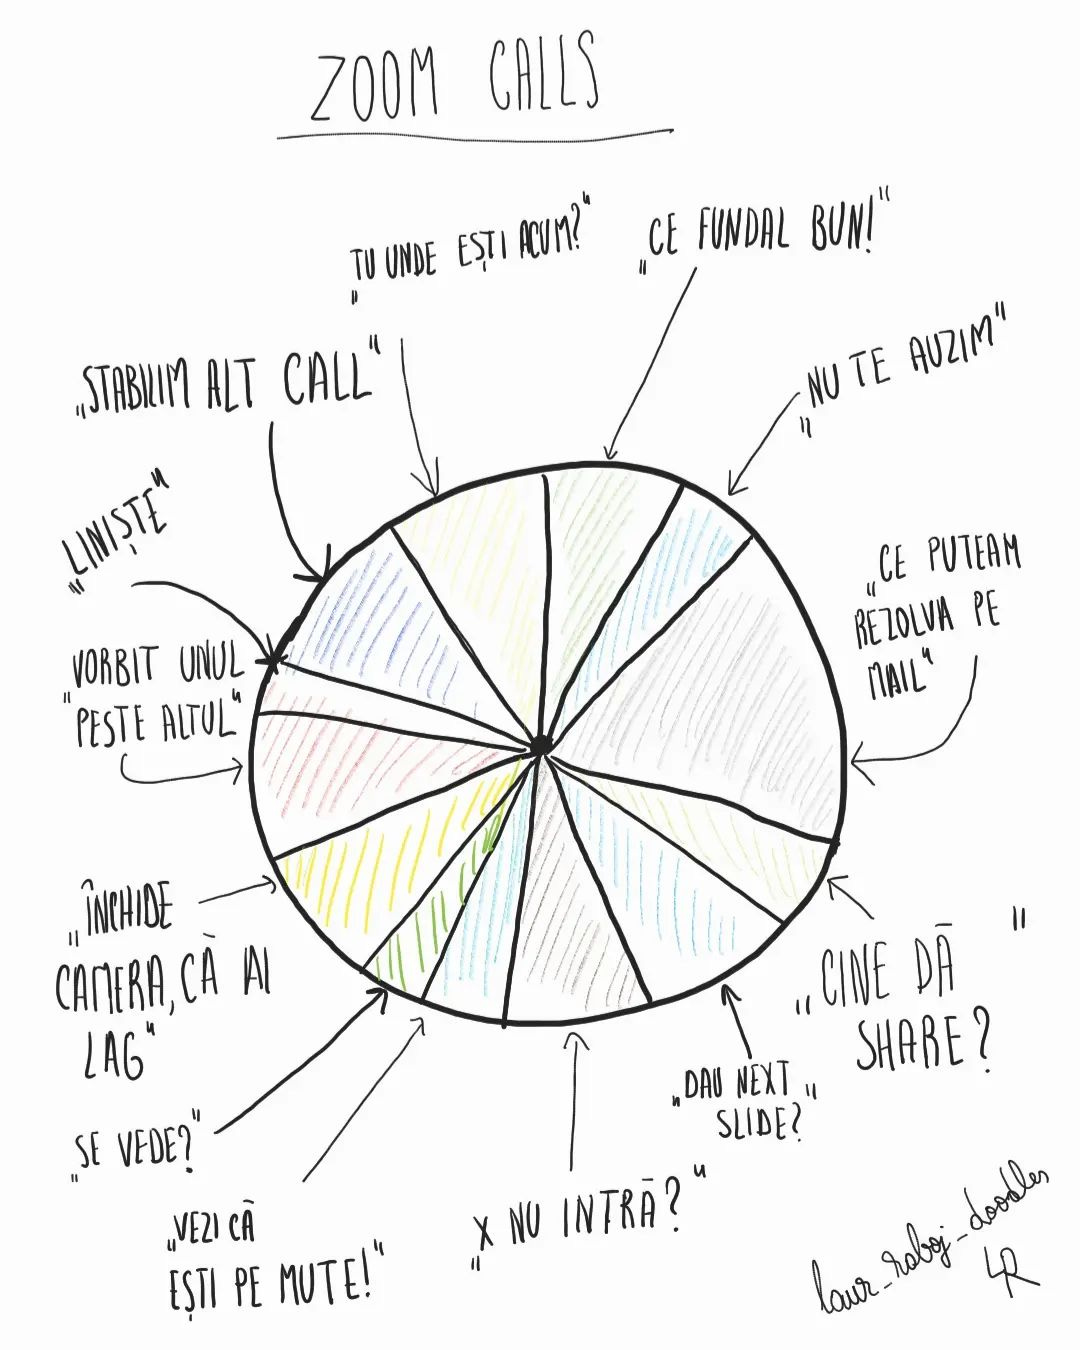 ZOOM CALLS
„TU UNDE EȘTI ACUM?"
„CE FUNDAL BUN!"
„STABILIM ALT CALL"
„NU TE AUZIM"
„LINIȘTE"
„CE PUTEAM
REZOLVA PE
MAIL"
VORBIT UNUL
"PESTE ALTUL"
„ÎNCHIDE
CAMERA, CĂ AI
LAG"
„CINE DĂ
SHARE?"
„DAU NEXT
SLIDE?"
„SE VEDE?"
„X NU INTRĂ?"
„VEZI CĂ
EȘTI PE MUTE!"
laur_raboj_doodles
LR